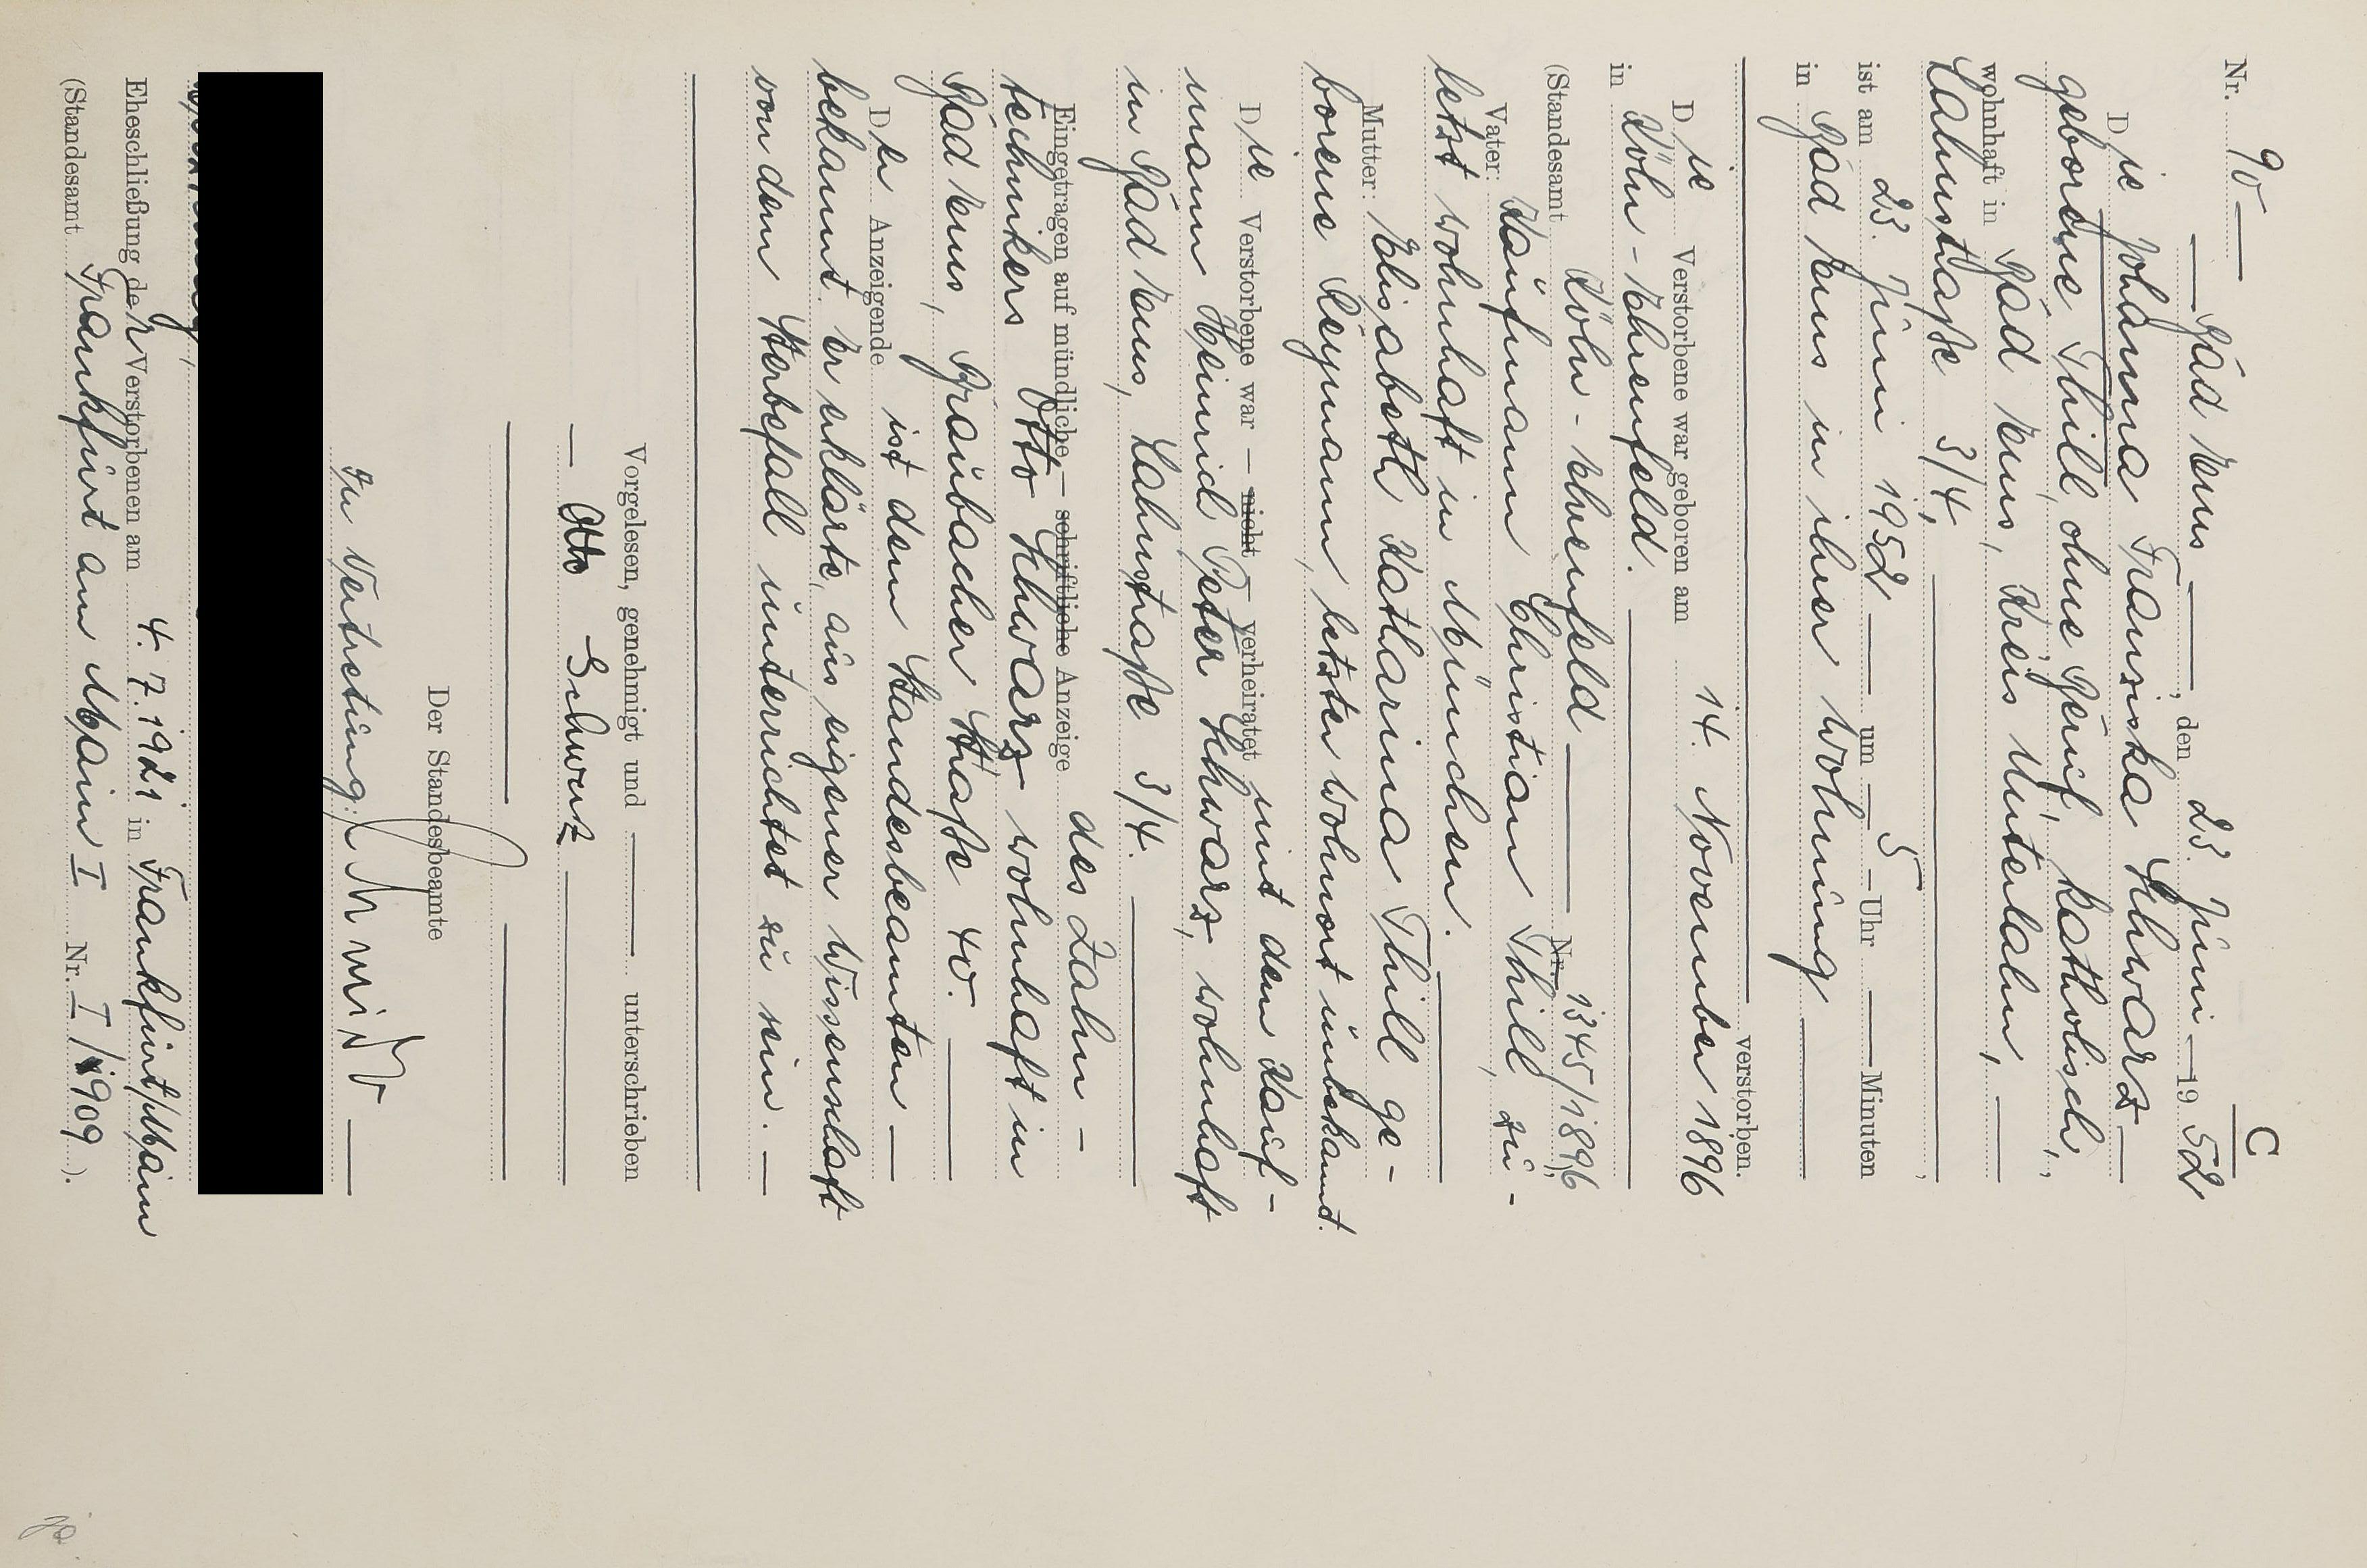 C
Nr. 90 —
— Bad Ems —, den 23. Juni — 19 52
Die Johanna Franziska Schwarz —
geborene Thill, ohne Beruf, katholisch,
wohnhaft in Bad Ems, Kreis Unterlahn, —
Lahnstraße 3/4, —
ist am 23. Juni 1952 — um — 5 — Uhr — Minuten
in Bad Ems in ihrer Wohnung —
verstorben.
Die Verstorbene war geboren am 14. November 1896
in Köln-Ehrenfeld. —
(Standesamt Köln-Ehrenfeld — Nr. 1345/1896
Vater: Kaufmann Christian Thill, zu-
letzt wohnhaft in München. —
Mutter: Elisabeth Katharina Thill ge-
borene Leymann, letzter Wohnort unbekannt.
Die Verstorbene war — nicht — verheiratet mit dem Kauf-
mann Heinrich Peter Schwarz, wohnhaft
in Bad Ems, Lahnstraße 3/4. —
Eingetragen auf mündliche — schriftliche Anzeige des Zahn-
technikers Otto Schwarz wohnhaft in
Bad Ems, Graubacher Straße 40. —
Der Anzeigende ist dem Standesbeamten —
bekannt. Er erklärte, aus eigener Wissenschaft
von dem Sterbefall unterrichtet zu sein. —
Vorgelesen, genehmigt und — unterschrieben
— Otto Schwarz —
Der Standesbeamte
In Vertretung: Schmidt —
Eheschließung der Verstorbenen am 4. 7. 1921 in Frankfurt/Main
(Standesamt Frankfurt am Main I Nr. I/1909).